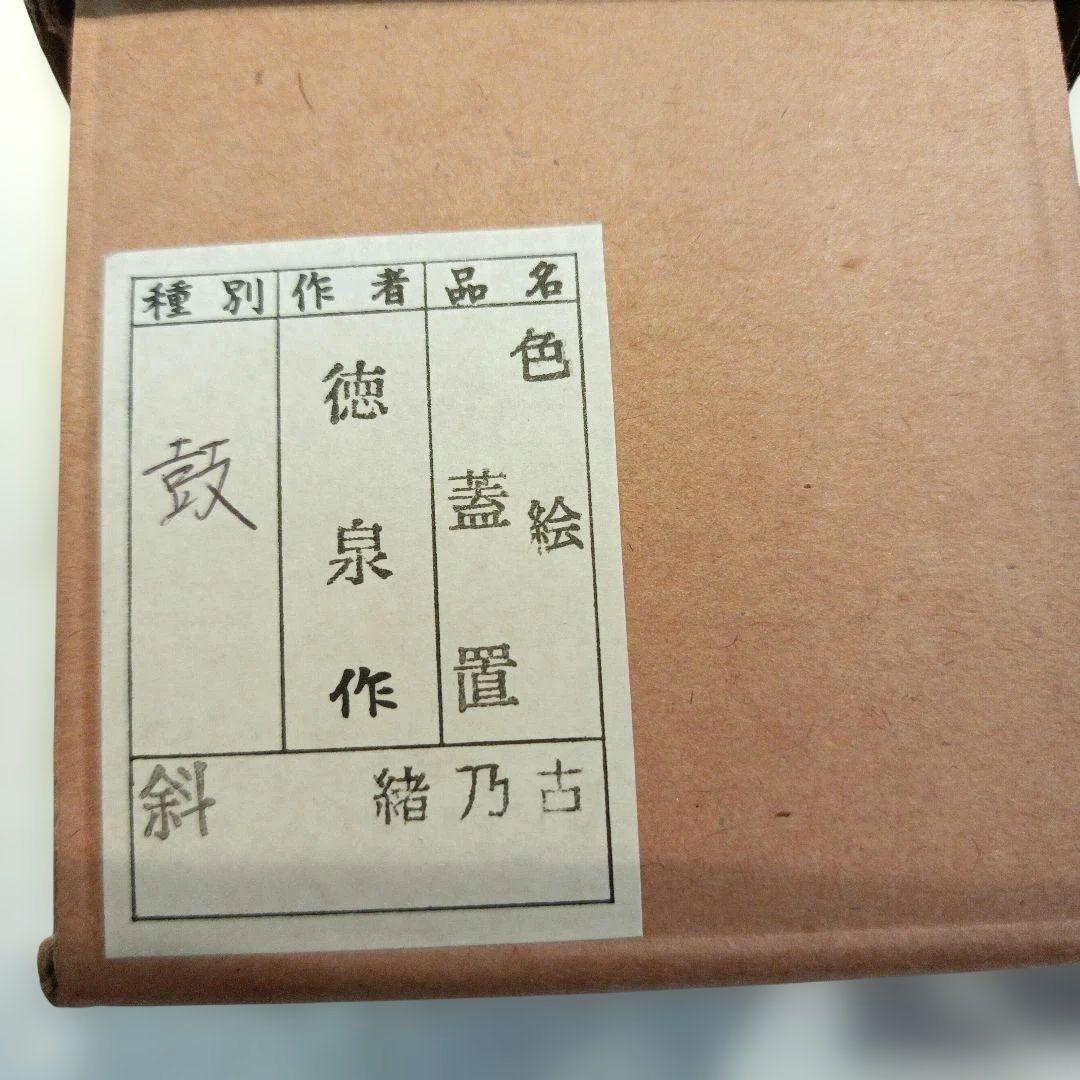 品名
色絵
蓋置
作者
徳泉作
種別
鼓
古乃緒
斜